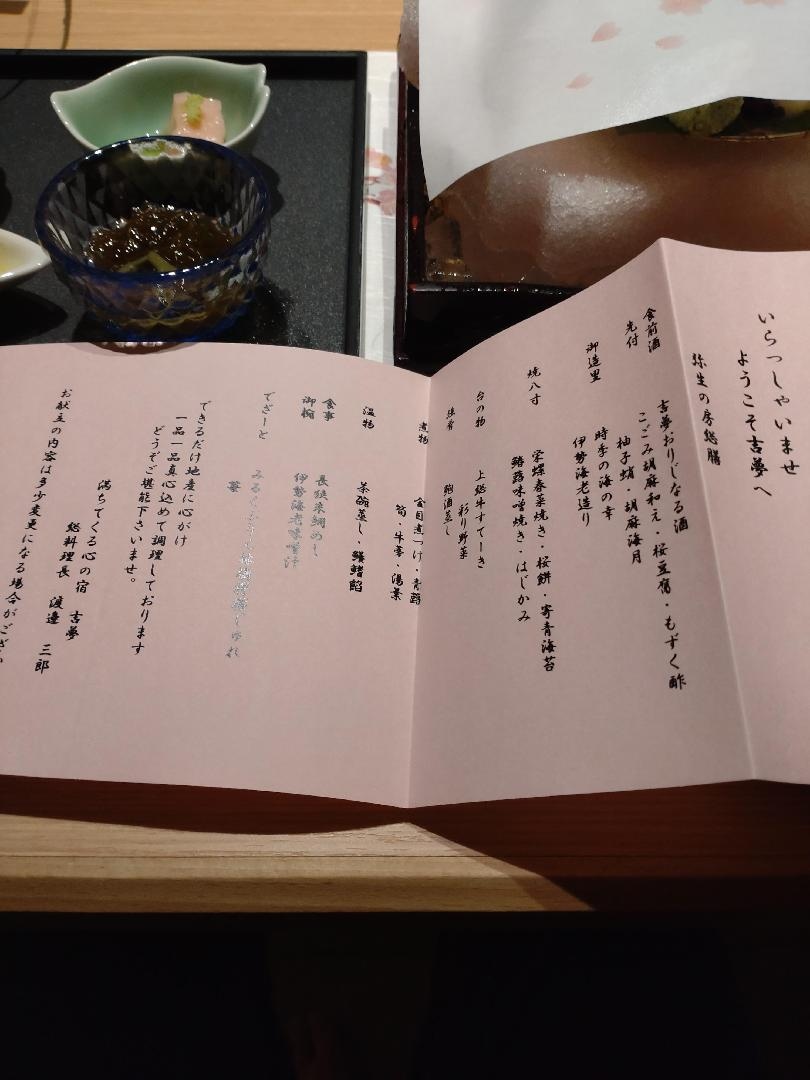 いらっしゃいませ
ようこそ吉夢へ
弥生の房総膳
食前酒 吉夢おりじなる酒
先付 こごみ胡麻和え・桜豆腐・もずく酢
柚子蛸・胡麻海月
御造里 時季の海の幸
伊勢海老造り
焼八寸 栄螺春菜焼き・桜餅・寄青海苔
鰆蕗味噌焼き・はじかみ
台の物 上総牛すてーき
彩り野菜
鮑酒蒸し
煮物 金目煮つけ・青蕗
筍・牛蒡・湯葉
温物 茶碗蒸し・鱶鰭餡
食事 長狭米鯛めし
御椀 伊勢海老味噌汁
でざーと
苺
できるだけ地産に心がけ
一品一品真心込めて調理しております
どうぞご堪能下さいませ。
満ちてくる心の宿 吉夢
総料理長 渡邉 三郎
お献立の内容は多少変更になる場合がござい